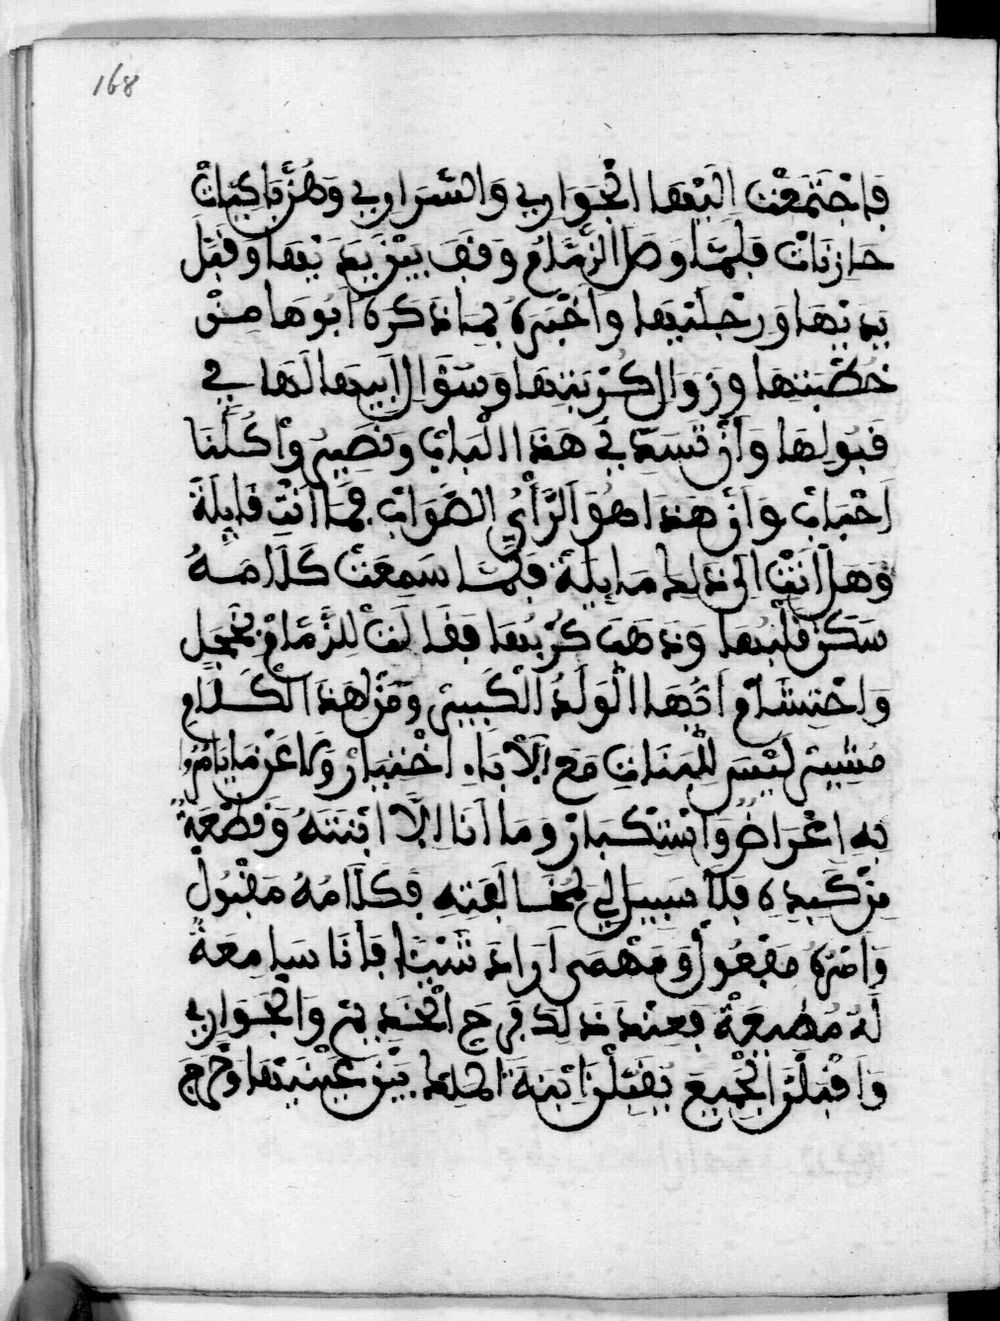 168
فَاجْتَمَعْت الَيْهَا الجَوَارِي وَالسَّرَارِي وَهُنَّ بَاكِيَاتْ
حازنات فلمّا وصل الزّمّام وقف بين يديها وقبّل
يديْها ورجْليْها واَخْبَرهُ بماذكره اَبُوها منْ
خُطْبتها وزوال كُرْبتها وسؤال ابيها لها في
قبُولها وَاَنْ تسدّ في هَذا الْباب ونصير وأكُلّنا
اَحْباب وانّ هذا هُوَ الرَّأي الصَّواب فما انت قايِلَة
وَهَل انتِ الى ذلك مايِلَة فلمّا سَمِعَتْ كَلَامهُ
سَكن قلْبُها وذهب كرْبُها فقالت للزّمّام بخجل
وَاحْتِشام ايّها الْوَلَدُ الْكَبير وَمَن لهذا الكلام
مُشِير لَيْسَ للبنات مَعَ الْاَبَاءِ اخْتيار ولا عن ما يامُرُوا
به اعْراض وَاسْتكْبار وَما اَنا الّا ابْنتهُ وَقطْعَةٌ
منْ كَبده فلا سبيل لي لمُخالفته فكَلامُهُ مَقْبُول
وَاَمْرُهُ مفْعُول وَمَهْمى اَرادَ شَيْئًا فاَنا سامِعَةٌ
لَهُ مُطِيعَةٌ فعنْد ذلك فرح الخديم وَالجَوَارِي
وَاقْبَلْنَ الجميع يقبّلْن ابنة الملك بيْن عيْنيْها وخرج